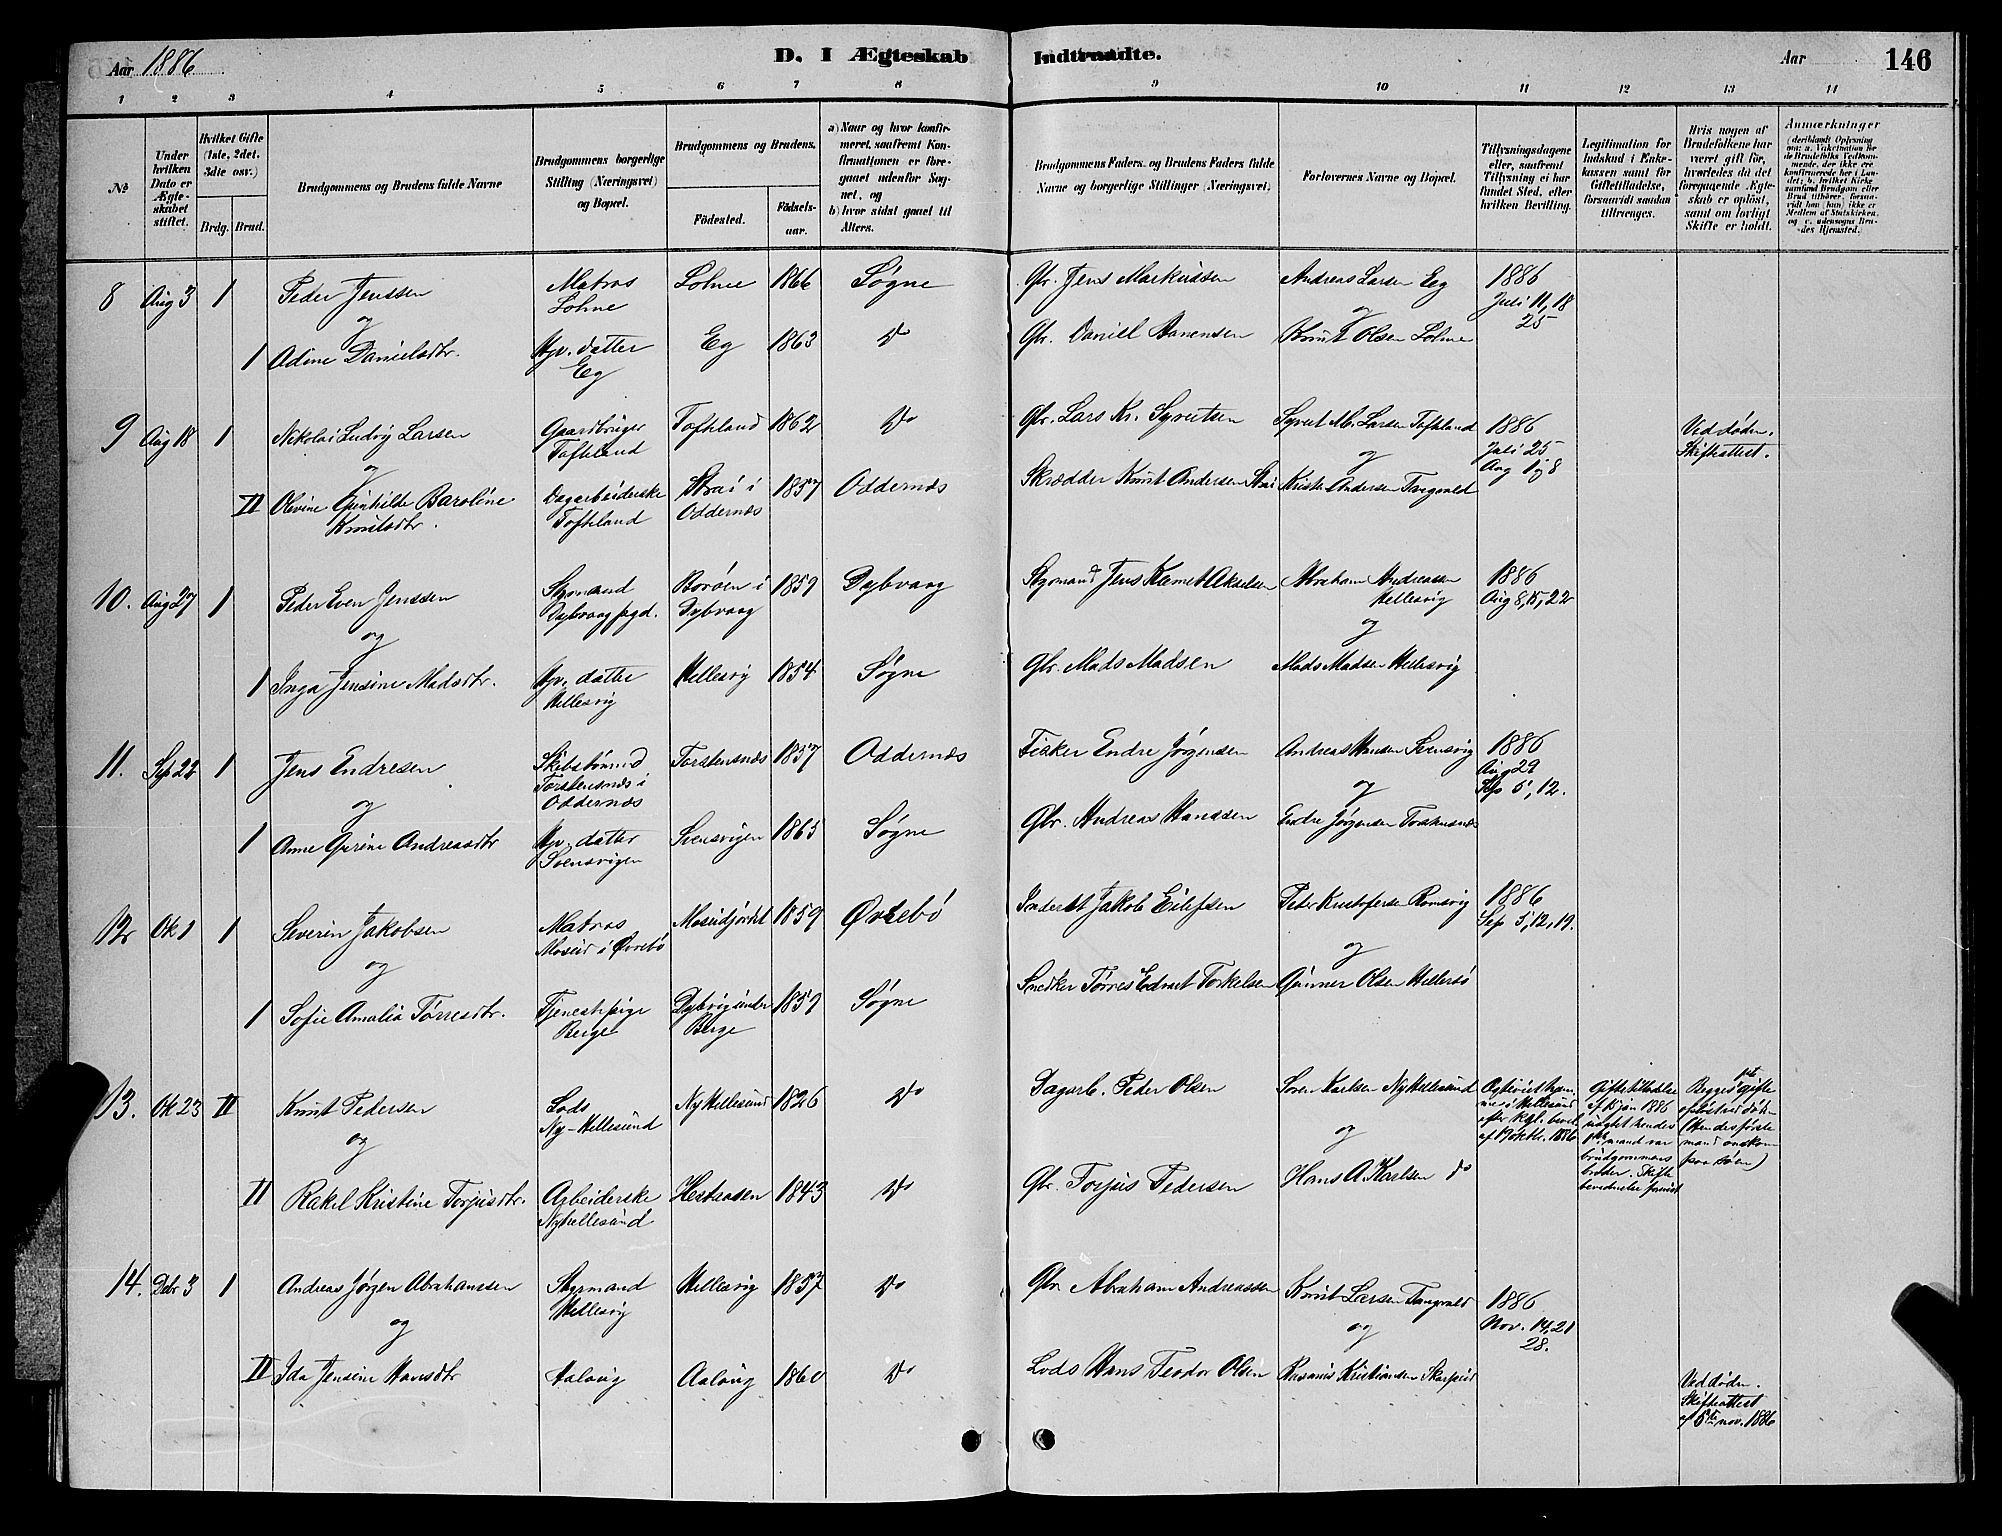 Aar 1886
D. I Ægteskab Indtraadte.
Aar
146
1 2 3 4 5 6 7 8 9 10 11 12 13 14
No
Under hvilken Dato er Ægteskabet stiftet.
Hvilket Gifte (1ste, 2det, 3die osv.)
Brdg. Brud.
Brudgommens og Brudens fulde Navne
Brudgommens borgerlige Stilling (Næringsvei) og Bopæl.
Brudgommens og Brudens.
Fødested.
Fødselsaar.
a) Naar og hvor konfirmeret, saafremt Konfirmationen er foregaaet udenfor Sognet, og
b) hvor sidst gaaet til Alters.
Brudgommens Faders og Brudens Faders fulde Navne og borgerlige Stillinger (Næringsvei).
Forlovernes Navne og Bopæl.
Tillysningsdagene eller, saafremt Tillysning ei har fundet Sted, efter hvilken Bevilling.
Legitimation for Indskud i Enkekassen samt for Giftetilladelse, forsaavidt saadan tiltrænges.
Hvis nogen af Brudefolkene har været gift før, hvorledes da det foregaaende Ægteskab er opløst, samt om lovligt Skifte er holdt.
Anmærkninger
8 Aug 3 1 Peder Jenssen Matros Lohne Lohne 1866 Søgne Gbr. Jens Markussen Andreas Larsen Eg 1886 Juli 11, 18 25
og og
1 Adine Danielsdtr. Hjv. datter Eg Eg 1863 Do Gbr. Daniel Hanensen Knut Olsen Lohne
9 Aug 18 1 Nikolai Ludvig Larsen Gaardbruger Tofteland Toftland 1862 Do Gbr. Lars Kr. Syvertsen Syvert M. Larsen Toftland 1886 Juli 25 Aug 1 og 8 Ved døden. Skifteattest.
og og
II Olevine Gunhilde Baroline Knutsdtr. Dagarbeiderske Tofteland Strai i Oddernæs 1857 Oddernæs Skrædder Knut Andersen Strai Kristen Andersen Tangvald
10. Aug 27 1 Peder Even Jenssen Styrmand Dybvaag sogd. Borøen i Dybvaag 1859 Dybvaag Styrmand Jens Kamet Akselsen Abraham Andreassen Hellesvig 1886 Aug 8, 15, 22
og og
1 Inga Jensine Madsdtr. Hjv. datter Hellesvig Hellesvig 1854 Søgne Gbr. Mads Madsen Mads Madsen Hellesvig
11. Sep 22 1 Jens Endresen Skibstømmd Torstensnæs i Oddernæs Torstensnæs 1857 Oddernæs Fisker Endre Jørgensen Andreas Hansen Svensvig 1886 Aug 29 Sep 5, 12.
og og
1 Anne Gurine Andreasdtr Hjv. datter Svensvigen Svensvigen 1865 Søgne Gbr. Andreas Hanssen Endre Jørgensen Torstensnæs
12 Ok 1 1 Severin Jakobsen Matros Moseid i Øvrebø Moseidjordet 1859 Øvrebø Inderst Jakob Eilefsen Peder Kristofersen Romsvig 1886 Sep 5, 12, 19.
og og
1 Sofie Amalia Tørresdtr. Tjenestepige Berge Dybvig under Berge 1859 Søgne Snedker Tørres Edvart Torkelsen Gunner Olsen Hellersø
13. Ok 23 II Knut Pedersen Lods Ny-Hellesund Ny Hellesund 1826 Do Dagarb. Peder Olsen Soren Karlsen Ny Hellesund Giftetilladelse af 15 jan 1886 brudgommens broder.
og og
II Rakel Kristine Torjusdtr. Arbeiderske Nyhellesund Hestaasen 1843 Do Gbr. Torjus Pedersen Hans A. Karlsen do
14. Debr 3 1 Andreas Jørgen Abrahamssen Styrmand Hellesvig Hellesvig 1857 Do Gbr Abraham Andreassen Knut Larsen Tangvald 1886 Nov. 14, 21 28.
og og
II Ida Jensine Hansdtr Aalovig Aalovig 1860 Do Lods Hans Teodor Olsen Rasmus Kristiansen Skarpeid Ved døden. Skifteattest af 5te nov. 1886